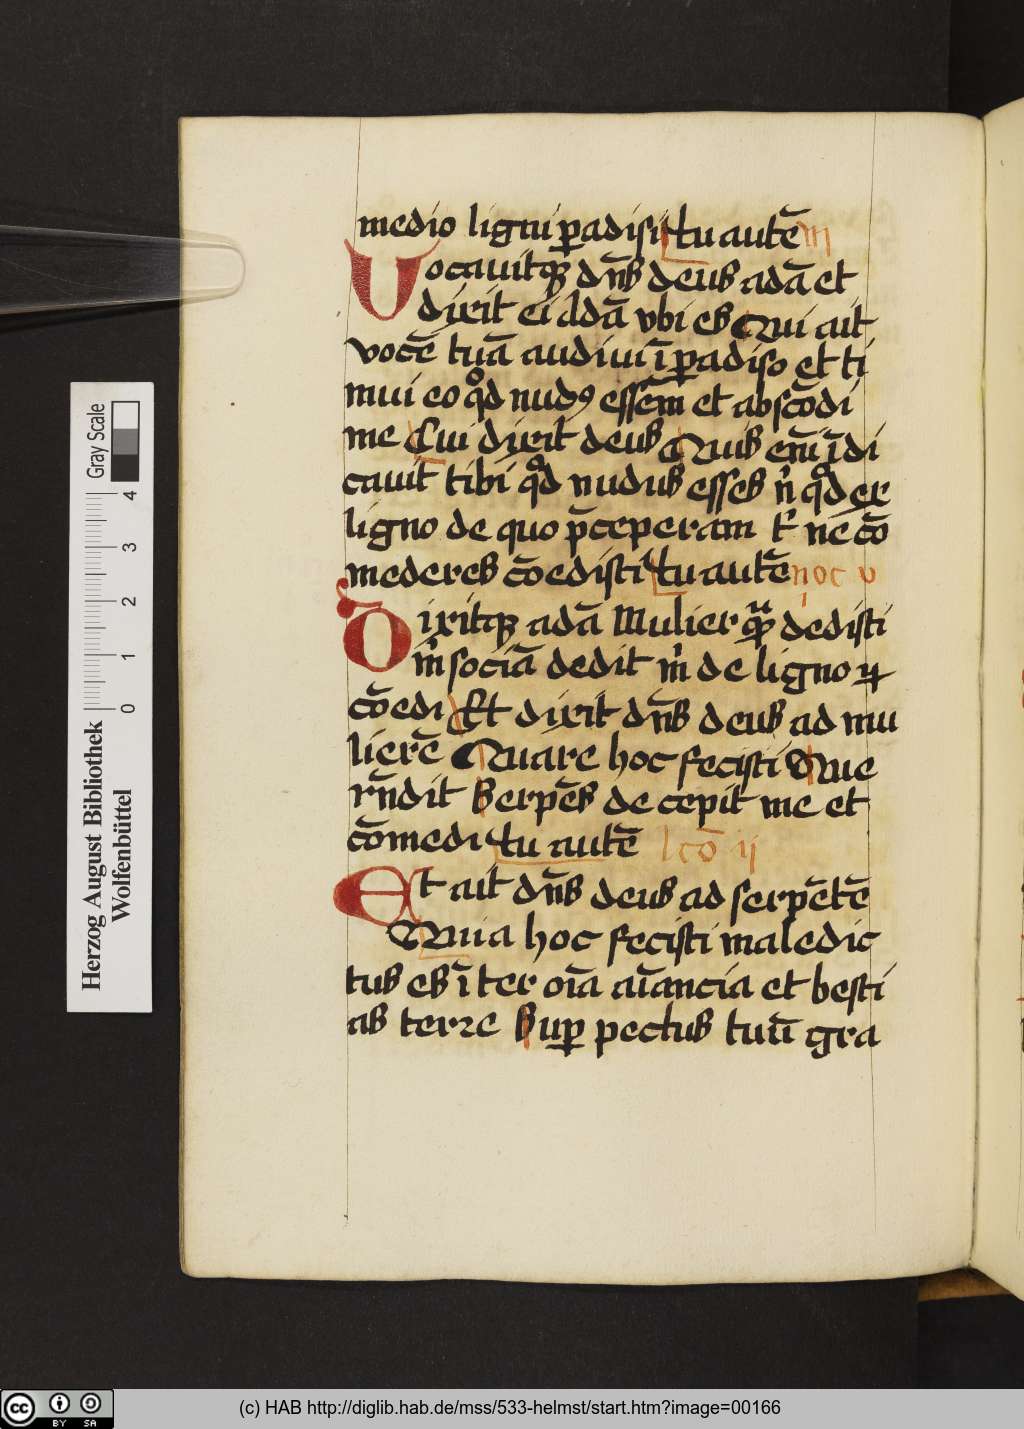 medio ligni ꝑadisi tu autē iii
Uocauitqꝫ dn̄s deus adā et
dixit ei Adā vbi es Qui ait
vocē tuā audiui ī ꝑadiso et ti
mui eo qͦd nudꝰ essēm et abscōdi
me Cui dixit deus Quis em̄ īdi
cauit tibi qͦd nudus esses n̄ qͦd ex
ligno de quo p̄ceperam tͥ ne cō
mederes cōedisti tu autē noc v
Dixitqꝫ adā Mulier quā dedisti
mͥ sociā dedit mͥ de ligno ⁊
cōedi Et dixit dn̄s deus ad mu
lierē Quare hoc fecisti Que
rn̄dit Serpēs de cepit me et
cōmedi tu autē lcō ii
Et ait dn̄s deus ad serpētē
Quia hoc fecisti maledic
tus es īter oīa aīancia et besti
as terre Suꝑ pectus tuū gra
Herzog August Bibliothek
Wolfenbüttel
Gray Scale
0 1 2 3 4
cc BY SA
(c) HAB http://diglib.hab.de/mss/533-helmst/start.htm?image=00166